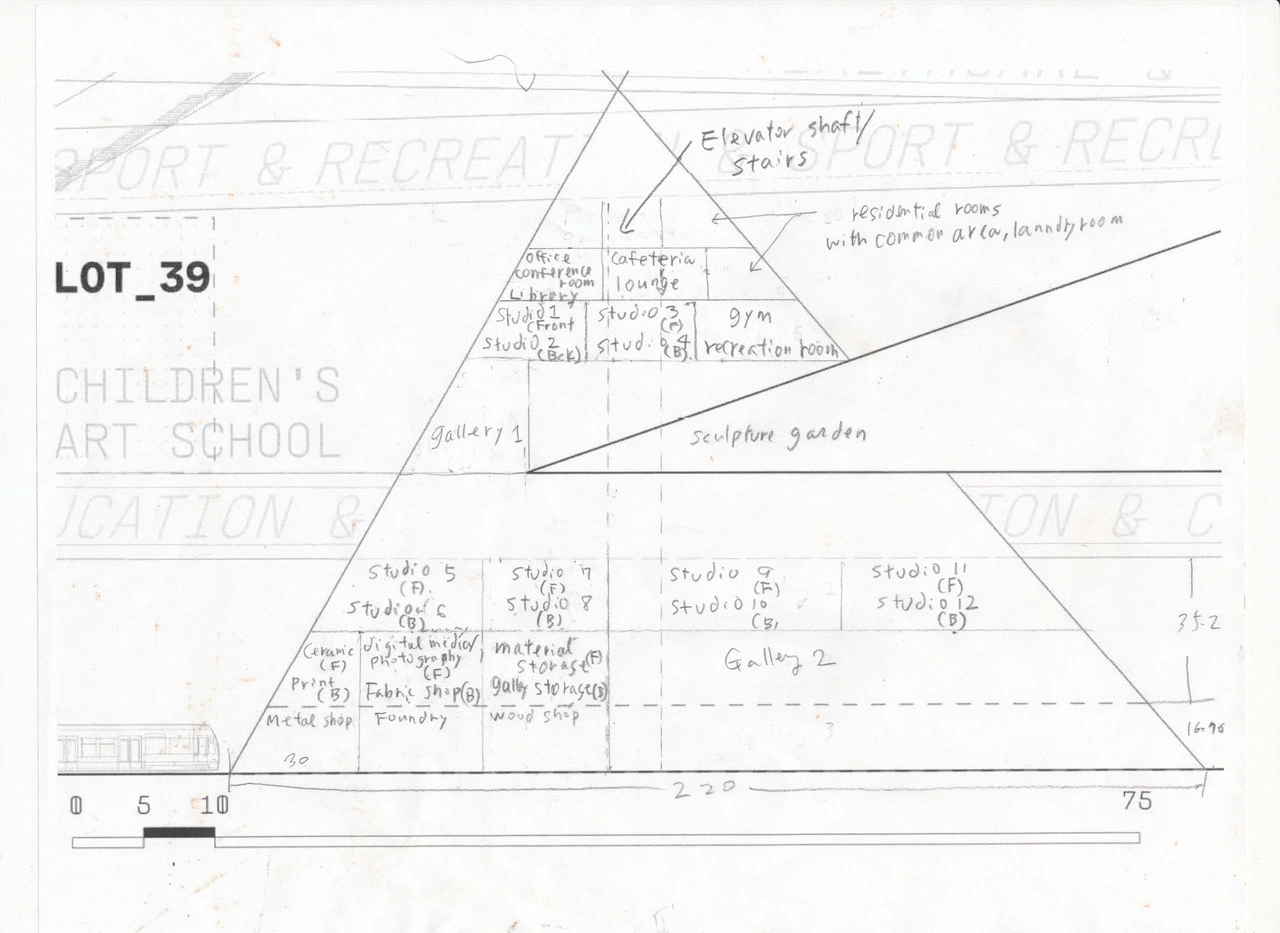 SPORT & RECREATION & SPORT & RECRE
Elevator shaft/
stairs
residential rooms
with common area, laundry room
LOT_39
office
conference
room
Library
Cafeteria
lounge
Studio 1
(Front
Studio 2
(Bck)
Studio 3
(F)
Studio 4
(B)
gym
recreation room
CHILDREN'S
ART SCHOOL
gallery 1
sculpture garden
UCATION &
ION & C
Studio 5
(F)
Studio 6
(B)
Studio 7
(F)
Studio 8
(B)
Studio 9
(F)
Studio 10
(B)
Studio 11
(F)
Studio 12
(B)
35.2
Ceramic
(F)
Print
(B)
digital media/
photography
(F)
Fabric shop(B)
material
storage(F)
gally storage(B)
Gallery 2
Metal shop
Foundry
Wood shop
3
30
220
0 5 10 75